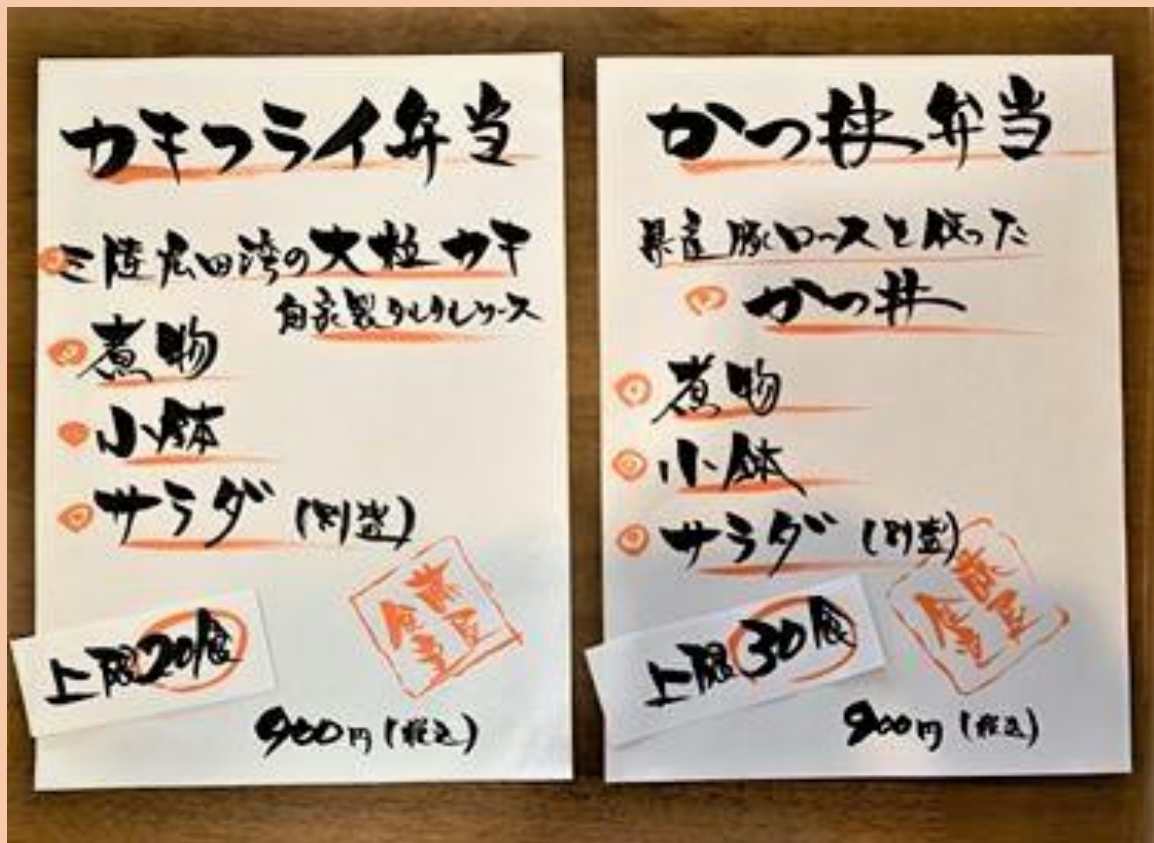 カキフライ弁当
三陸広田湾の大粒カキ
自家製タルタルソース
煮物
小鉢
サラダ(別盛)
上限20食
900円(税込)
かつ丼弁当
県産豚ロースを使った
かつ丼
煮物
小鉢
サラダ(別盛)
上限30食
900円(税込)